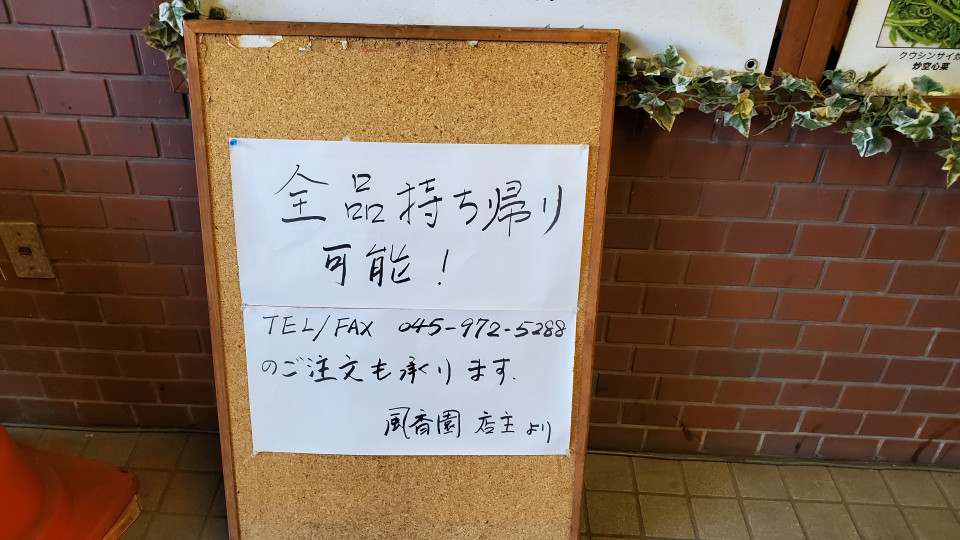 全品持ち帰り
可能!
TEL/FAX 045-972-5288
のご注文も承ります.
風香園 店主より
クウシンサイ炒
炒空心菜